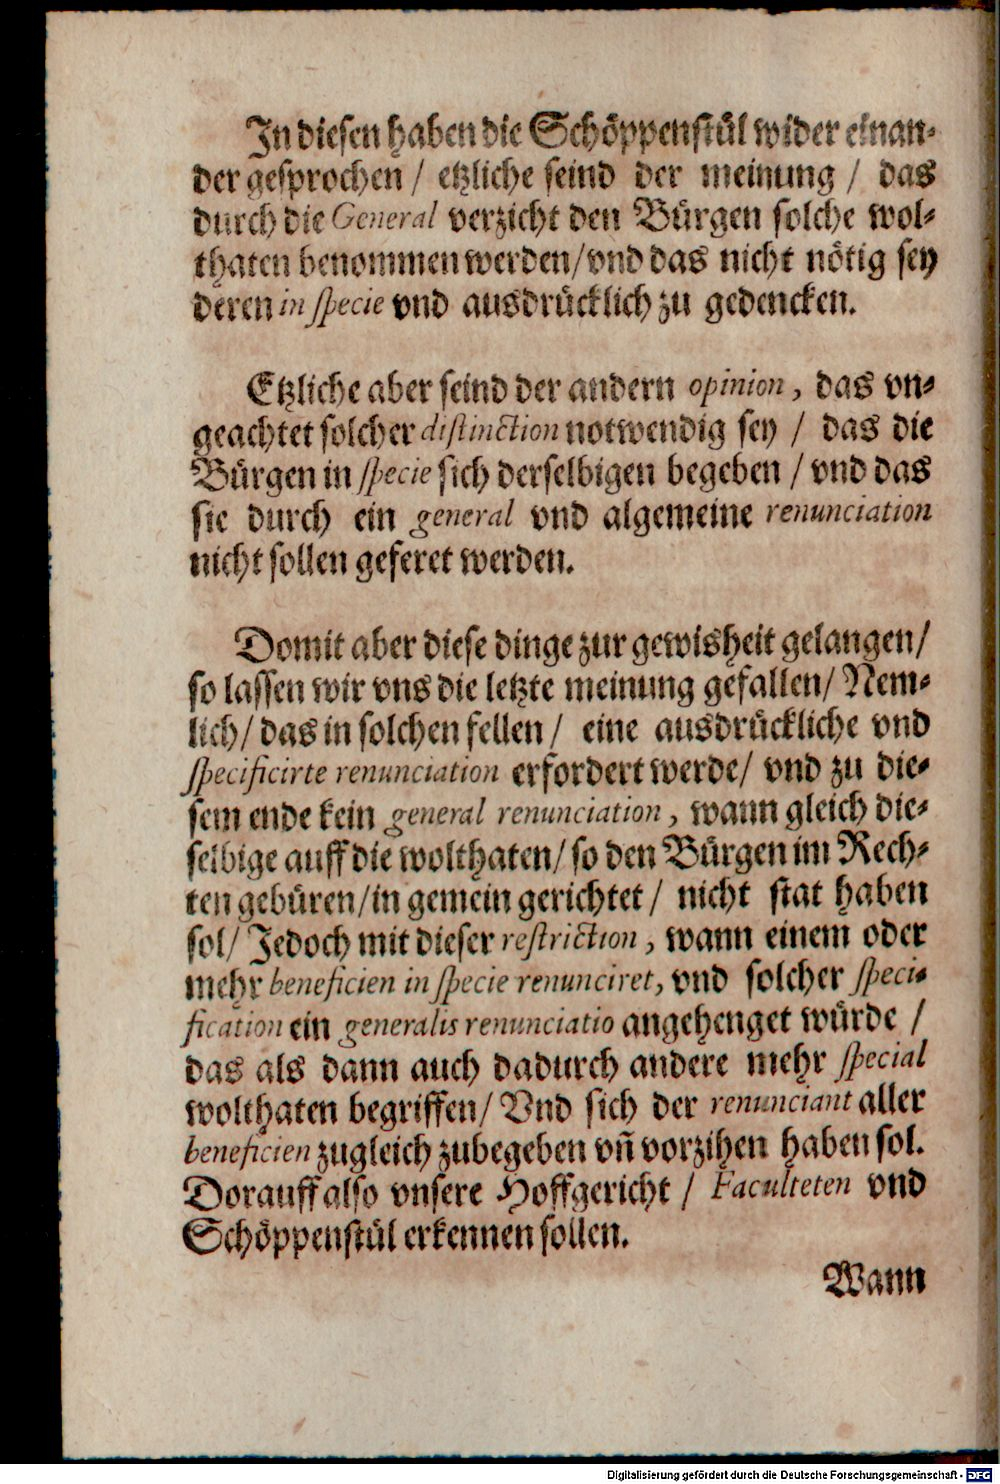 In diesen haben die Schöppenstül wider einan-
der gesprochen / etzliche seind der meinung / das
durch die General verzicht den Bürgen solche wol-
thaten benommen werden/ vnd das nicht nötig sey
deren in specie vnd ausdrücklich zu gedencken.
Etzliche aber seind der andern opinion, das vn-
geachtet solcher distinction notwendig sey / das die
Bürgen in specie sich derselbigen begeben / vnd das
sie durch ein general vnd algemeine renunciation
nicht sollen geferet werden.
Domit aber diese dinge zur gewisheit gelangen/
so lassen wir vns die letzte meinung gefallen/ Nem-
lich/ das in solchen fellen / eine ausdrückliche vnd
specificirte renunciation erfordert werde/ vnd zu die-
sem ende kein general renunciation, wann gleich die-
selbige auff die wolthaten/ so den Bürgen im Rech-
ten gebüren/ in gemein gerichtet / nicht stat haben
sol/ Jedoch mit dieser restriction, wann einem oder
mehr beneficien in specie renunciret, vnd solcher speci-
fication ein generalis renunciatio angehenget würde /
das als dann auch dadurch andere mehr special
wolthaten begriffen/ Vnd sich der renunciant aller
beneficien zugleich zubegeben vn̄ vorzihen haben sol.
Dorauff also vnsere Hoffgericht / Faculteten vnd
Schöppenstül erkennen sollen.
Wann
Digitalisierung gefördert durch die Deutsche Forschungsgemeinschaft - DFG